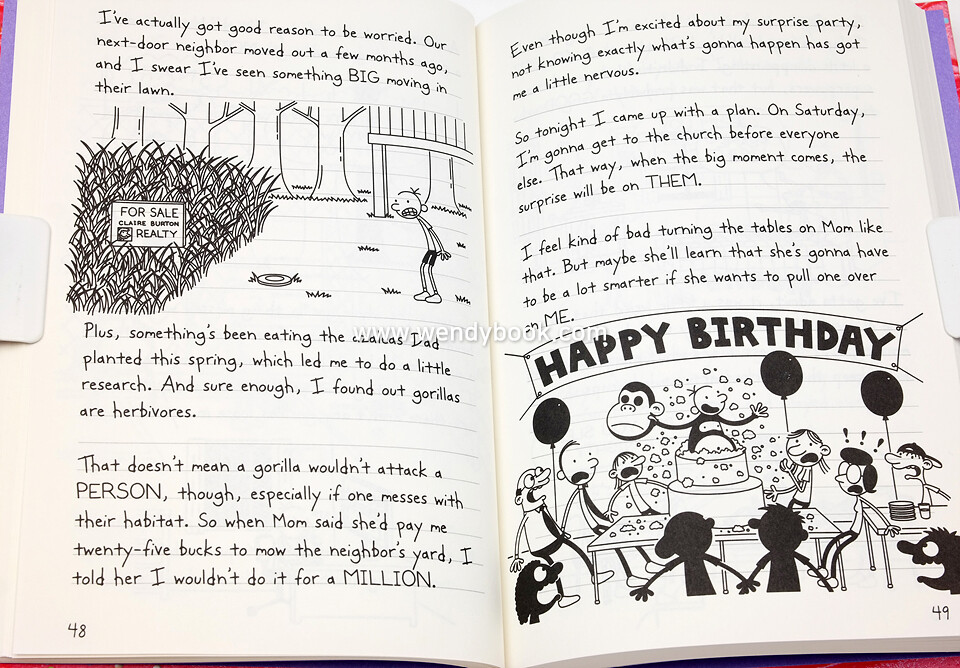 I've actually got good reason to be worried. Our
next-door neighbor moved out a few months ago,
and I swear I've seen something BIG moving in
their lawn.
FOR SALE
CLAIRE BURTON
REALTY
Plus, something's been eating the Dad
planted this spring, which led me to do a little
research. And sure enough, I found out gorillas
are herbivores.
That doesn't mean a gorilla wouldn't attack a
PERSON, though, especially if one messes with
their habitat. So when Mom said she'd pay me
twenty-five bucks to mow the neighbor's yard, I
told her I wouldn't do it for a MILLION.
48
Even though I'm excited about my surprise party,
not knowing exactly what's gonna happen has got
me a little nervous.
So tonight I came up with a plan. On Saturday,
I'm gonna get to the church before everyone
else. That way, when the big moment comes, the
surprise will be on THEM.
I feel kind of bad turning the tables on Mom like
that. But maybe she'll learn that she's gonna have
to be a lot smarter if she wants to pull one over
on ME.
www.wendybook.com
HAPPY BIRTHDAY
! ! ! !
49